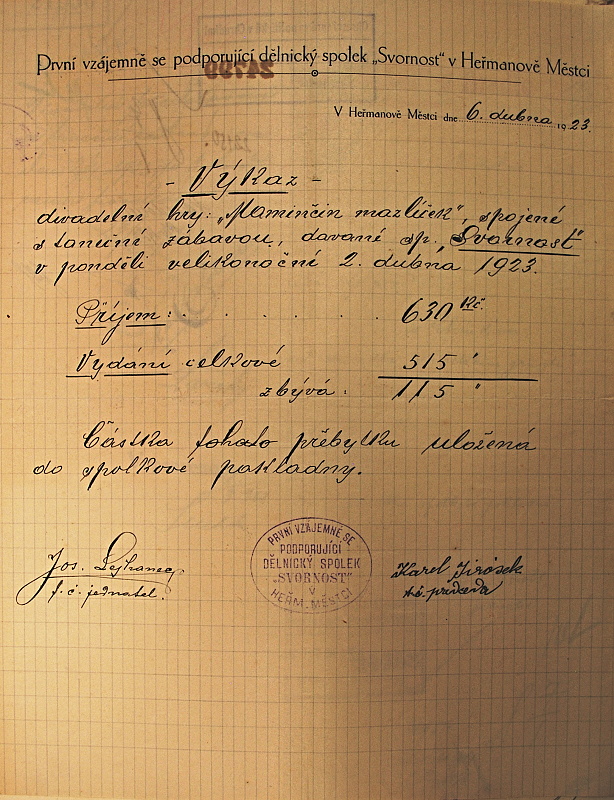 První vzájemně se podporující dělnický spolek „Svornost“ v Heřmanově Městci
V Heřmanově Městci dne 6. dubna 1923.
- Výkaz -
divadelní hry: „Maminčin mazlíček“, spojené
s taneční zábavou, davané sp. „Svornost“
v pondělí velikonoční 2. dubna 1923.
Příjem: . . . . . 630 Kč.
Vydání celkové 515 "
zbývá: 115 "
Částka tohoto přebytku uložená
do spolkové pokladny.
PRVNÍ VZÁJEMNĚ SE
PODPORUJÍCÍ
DĚLNICKÝ SPOLEK
„SVORNOST“
V
HEŘM. MĚSTCI
Jos.
t. č. jednatel.
Karel Jirásek
t. č. předseda